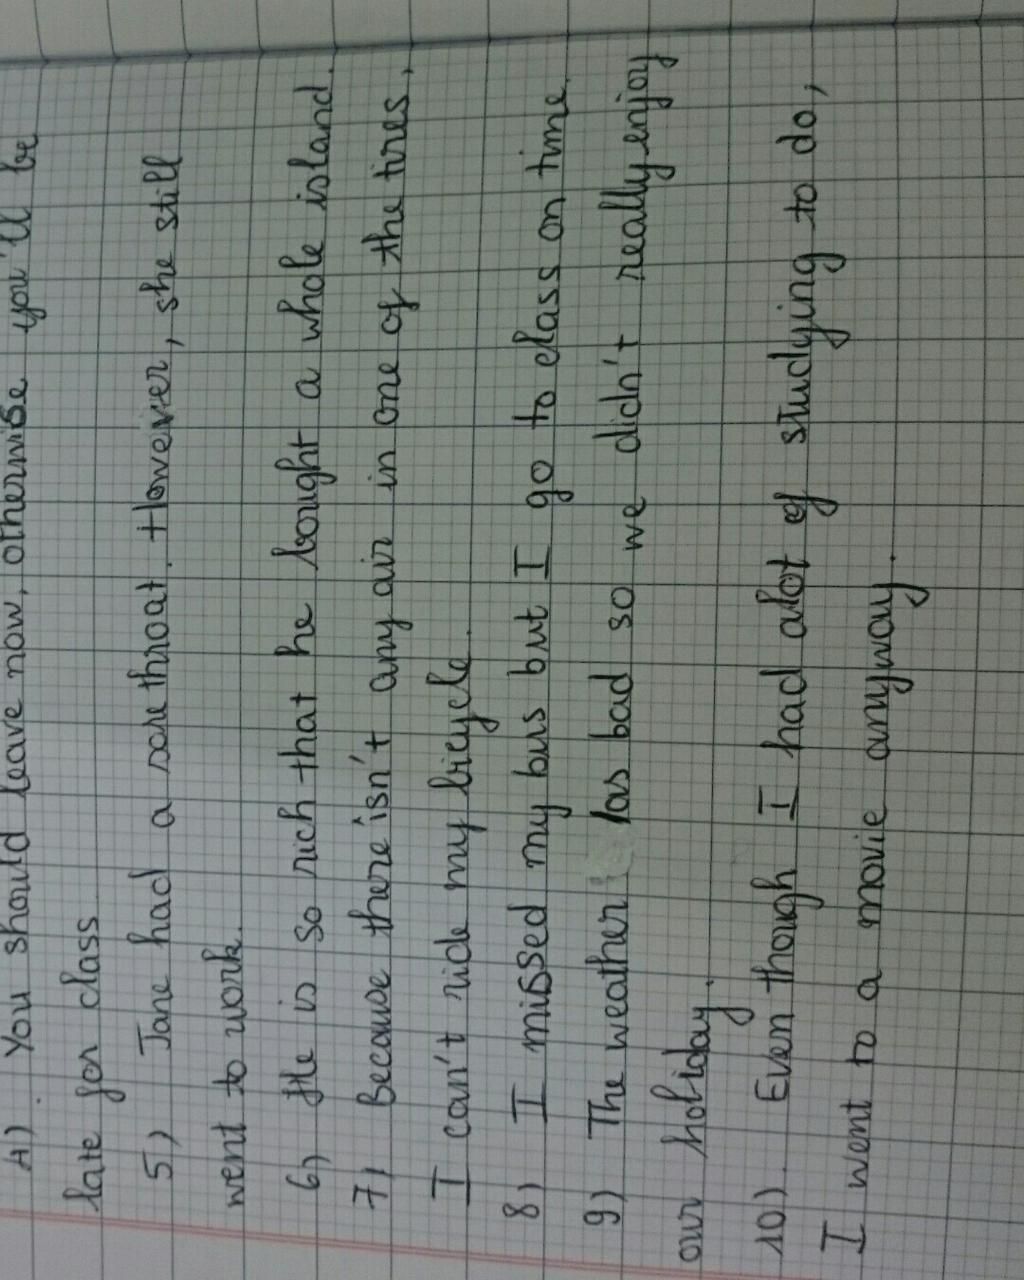 4). You should leave now, otherwise you'll be
late for class
5) Jane had a sore throat. However, she still
went to work.
6) He is so rich that he bought a whole island.
7) Because there isn't any air in one of the tires,
I can't ride my bicycle.
8) I missed my bus but I go to class on time.
9) The weather was bad so we didn't really enjoy
our holiday.
10). Even though I had alot of studying to do,
I went to a movie anyway.